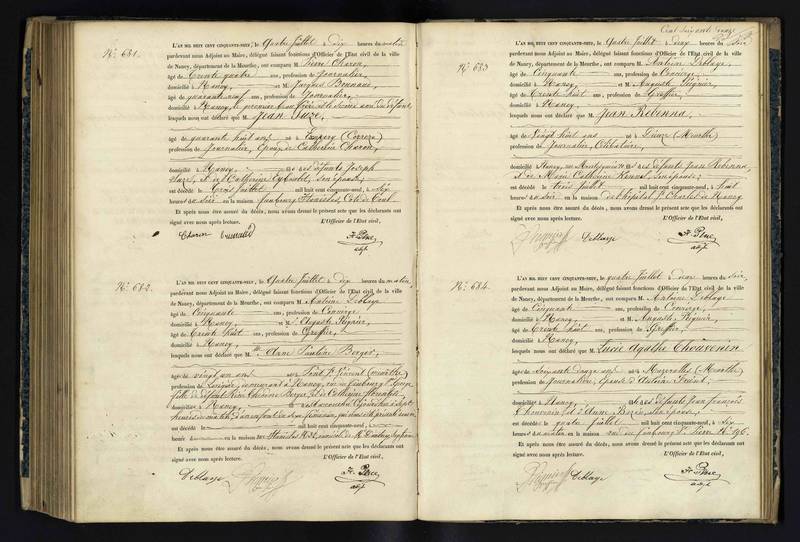 N.° 681.
L'AN MIL HUIT CENT CINQUANTE-NEUF, le quatre Juillet à dix heures du matin
pardevant nous Adjoint au Maire, délégué faisant fonctions d'Officier de l'Etat civil de la ville
de Nancy, département de la Meurthe, ont comparu M. Pierre Charon,
âgé de trente quatre ans, profession de Journalier,
domicilié à Nancy, et M. Jacques
âgé de quarante neuf ans, profession de Journalier,
domicilié à Nancy, le premier beau frère et le second ami du défunt,
lesquels nous ont déclaré que M. Jean Suze,
âgé de quarante huit ans né à (Corrèze)
profession de Journalier, Epoux de Catherine Charon,
domicilié à Nancy fils des défunts Joseph
Suze, et de Catherine son épouse;
est décédé le trois Juillet mil huit cent cinquante-neuf, à six
heures du soir en la maison faubourg Stanislas, Côte de Toul.
Et après nous être assuré du décès, nous avons dressé le présent acte que les déclarants ont
signé avec nous après lecture. L'Officier de l'Etat civil,
Charon
adjt
N.° 682.
L'AN MIL HUIT CENT CINQUANTE-NEUF, le quatre Juillet à dix heures du matin,
pardevant nous Adjoint au Maire, délégué faisant fonctions d'Officier de l'Etat civil de la ville
de Nancy, département de la Meurthe, ont comparu M. Antoine Deblaye
âgé de Cinquante ans, profession de Concierge
domicilié à Nancy, et M. Auguste Régnier,
âgé de trente huit ans, profession de Greffier,
domicilié à Nancy,
lesquels nous ont déclaré que M. Anne Pauline Berger,
âgé de vingt un ans né à Pont St. Vincent (Meurthe)
profession de Lingère, demeurant à Nancy, rue du faubourg St.
fille de défunt Berger, et de Catherine
domiciliée à Nancy
est décédé le mil huit cent cinquante-neuf, à
heures du en la maison rue Stanislas N.°
Et après nous être assuré du décès, nous avons dressé le présent acte que les déclarants ont
signé avec nous après lecture. L'Officier de l'Etat civil,
Deblaye
adjt
Cent soixante onze
N.° 683
L'AN MIL HUIT CENT CINQUANTE-NEUF, le quatre Juillet à deux heures du soir
pardevant nous Adjoint au Maire, délégué faisant fonctions d'Officier de l'Etat civil de la ville
de Nancy, département de la Meurthe, ont comparu M. Antoine Deblaye,
âgé de Cinquante ans, profession de Concierge,
domicilié à Nancy, et M. Auguste Régnier,
âgé de trente huit ans, profession de Greffier,
domicilié à Nancy,
lesquels nous ont déclaré que M. Jean Robenna,
âgé de vingt huit ans né à Dieuze (Meurthe)
profession de Journalier, Célibataire,
domicilié à Nancy, rue fils des défunts Jean Robenna,
et de Marie Catherine son épouse;
est décédé le trois Juillet mil huit cent cinquante-neuf, à huit
heures du soir en la maison de l'hôpital St. Charles de Nancy.
Et après nous être assuré du décès, nous avons dressé le présent acte que les déclarants ont
signé avec nous après lecture. L'Officier de l'Etat civil,
Deblaye
adjt
N.° 684.
L'AN MIL HUIT CENT CINQUANTE-NEUF, le quatre Juillet à deux heures du soir,
pardevant nous Adjoint au Maire, délégué faisant fonctions d'Officier de l'Etat civil de la ville
de Nancy, département de la Meurthe, ont comparu M. Antoine Deblaye
âgé de Cinquante ans, profession de Concierge,
domicilié à Nancy, et M. Auguste Régnier,
âgé de trente huit ans, profession de Greffier,
domicilié à Nancy,
lesquels nous ont déclaré que M. Lucie Agathe Thouvenin
âgé de Soixante onze ans né à Mazerulles (Meurthe)
profession de Journalière, épouse d'Antoine
domicilié à Nancy fille des défunts Jean François
Thouvenin et d'Anne son épouse;
est décédé le quatre Juillet mil huit cent cinquante-neuf, à six
heures du matin en la maison rue du faubourg St. Pierre N.°
Et après nous être assuré du décès, nous avons dressé le présent acte que les déclarants ont
signé avec nous après lecture. L'Officier de l'Etat civil,
Deblaye
adjt